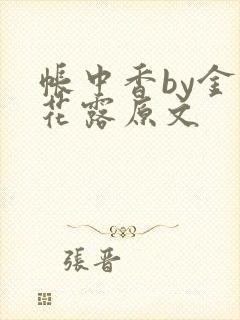 帳中香by金
花露原文
張晋